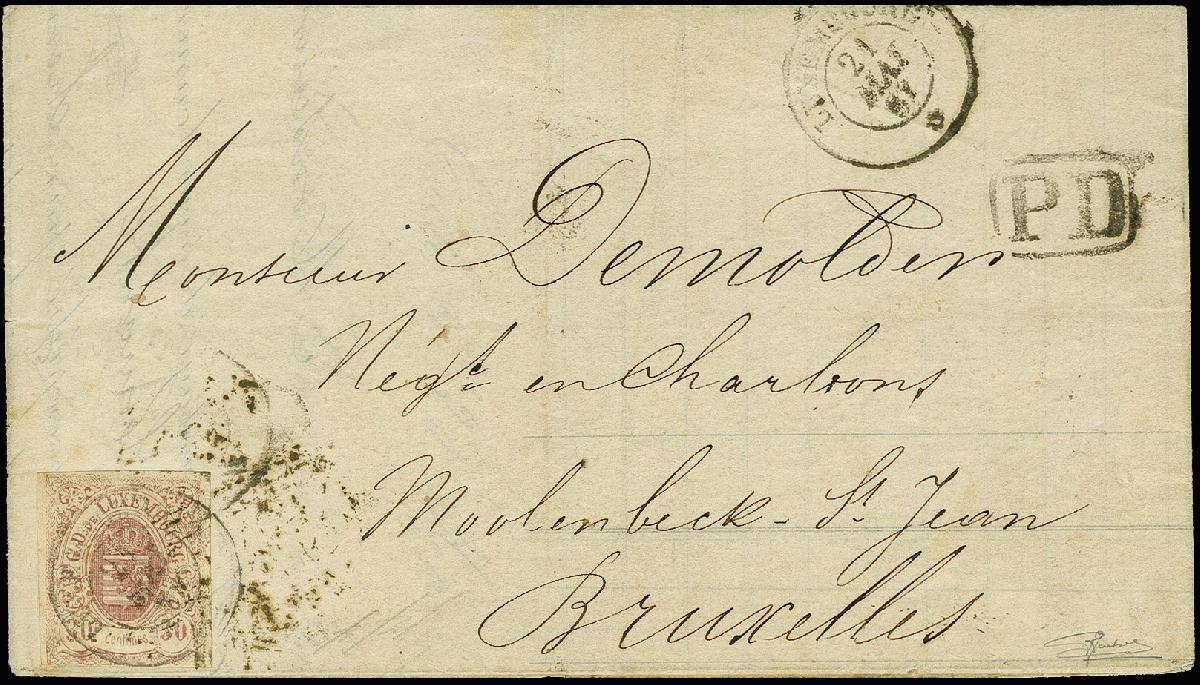 LUXEMBOURG
21
MAI
PD
Monsieur Demolder
Négt en Charbons
Moolenbeck - St Jean
Bruxelles
G.D. DE LUXEMBOURG
30 centimes 30